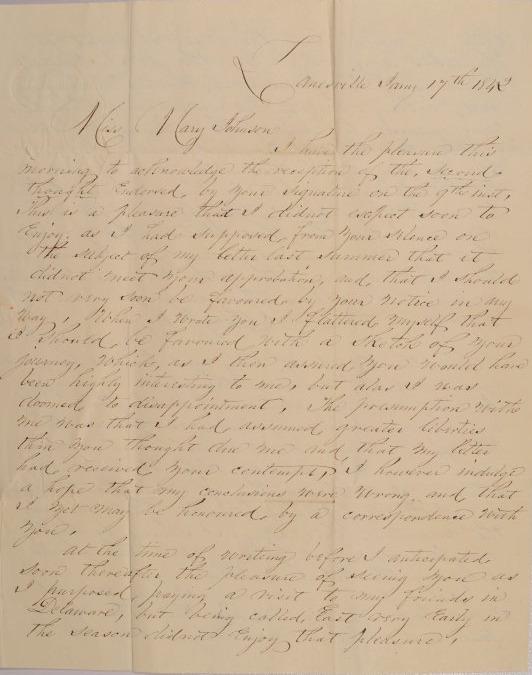 Zanesville Jany 17th 1842
Miss Mary Johnson
I have the pleasure this
morning to acknowledge the reception of the, second
thought Endorsed, by your Signature on the 9th inst,
This is a pleasure that I did not expect soon to
Enjoy, as I had supposed, from your Silence on
the subject of my letter last summer that it
did not meet your approbation, and, that I should
not very soon be favoured by your notice in any
way, When I wrote you I flattered myself that
I should be favoured with a sketch of your
journey, which, as I then assured you would have
been highly interesting to me, but alas I was
doomed to disappointment, The presumption with
me was that I had assumed greater liberties
than you thought due me and that my letter
had received your contempt, I however indulge
a hope that my conclusions were wrong and that
I yet may be honoured, by a correspondence with
you,
at the time of writing before I anticipated
soon thereafter the pleasure of seeing you as
I purposed, paying a visit to my friends in
Delaware, but being called, East very Early in
the season did not Enjoy that pleasure,